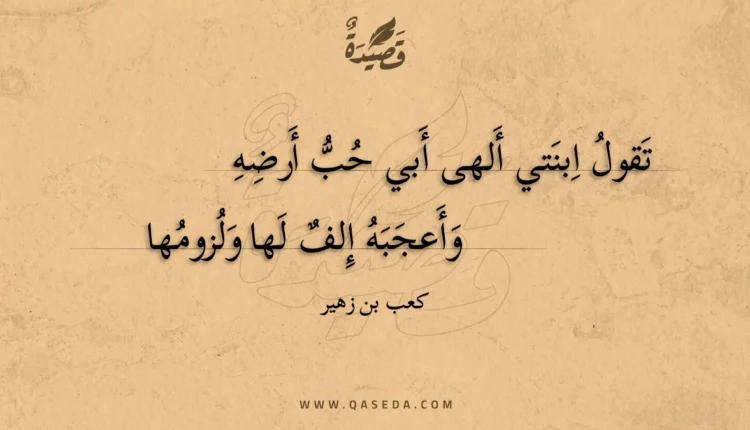 قَصِيدَةٌ
تَقولُ اِبنَتي أَلهى أَبي حُبُّ أَرضِهِ
وَأَعجَبَهُ إِلفٌ لَها وَلُزومُها
كعب بن زهير
WWW.QASEDA.COM